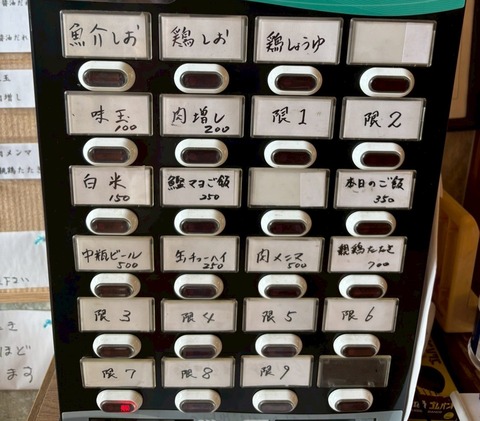 魚介しお
鶏しお
鶏しょうゆ
味玉
100
肉増し
200
限1
限2
白米
150
鰹マヨご飯
250
本日のご飯
350
中瓶ビール
500
缶チューハイ
250
肉メンマ
500
親鶏たたき
700
限3
限4
限5
限6
限7
限8
限9
醤油だれ
玉
増し
メンマ
親鶏たたき
下さい
き
ほど
まる